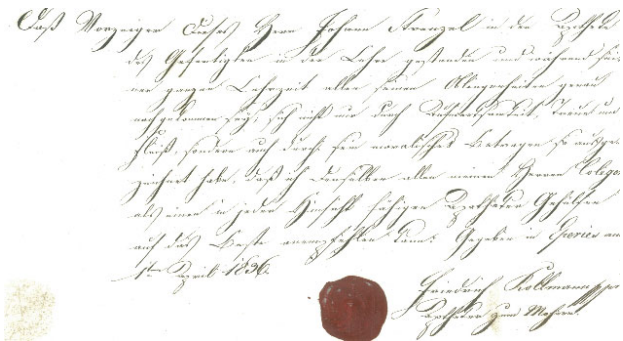 Daß Vorzeiger dieses Herr Johann Strenzel in der Apotheke
des Gefertigten in der Lehre gestanden und während sei-
ner ganzen Lehrzeit allen seinen Obliegenheiten genau
nachgekommen sey, sich nicht nur durch Aufmerksamkeit, Treue und
Fleiß, sondern auch durch sein moralisches Betragen so ausge-
zeichnet habe, daß ich denselben allen meinen Herren Collegen
als einen in jeder Hinsicht fähigen Apotheker Gehülfen
auf das Beste anempfehlen kann. Gegeben in am
1ten April 1836.
Friedrich Kollmann
Apotheker zum Mohren.